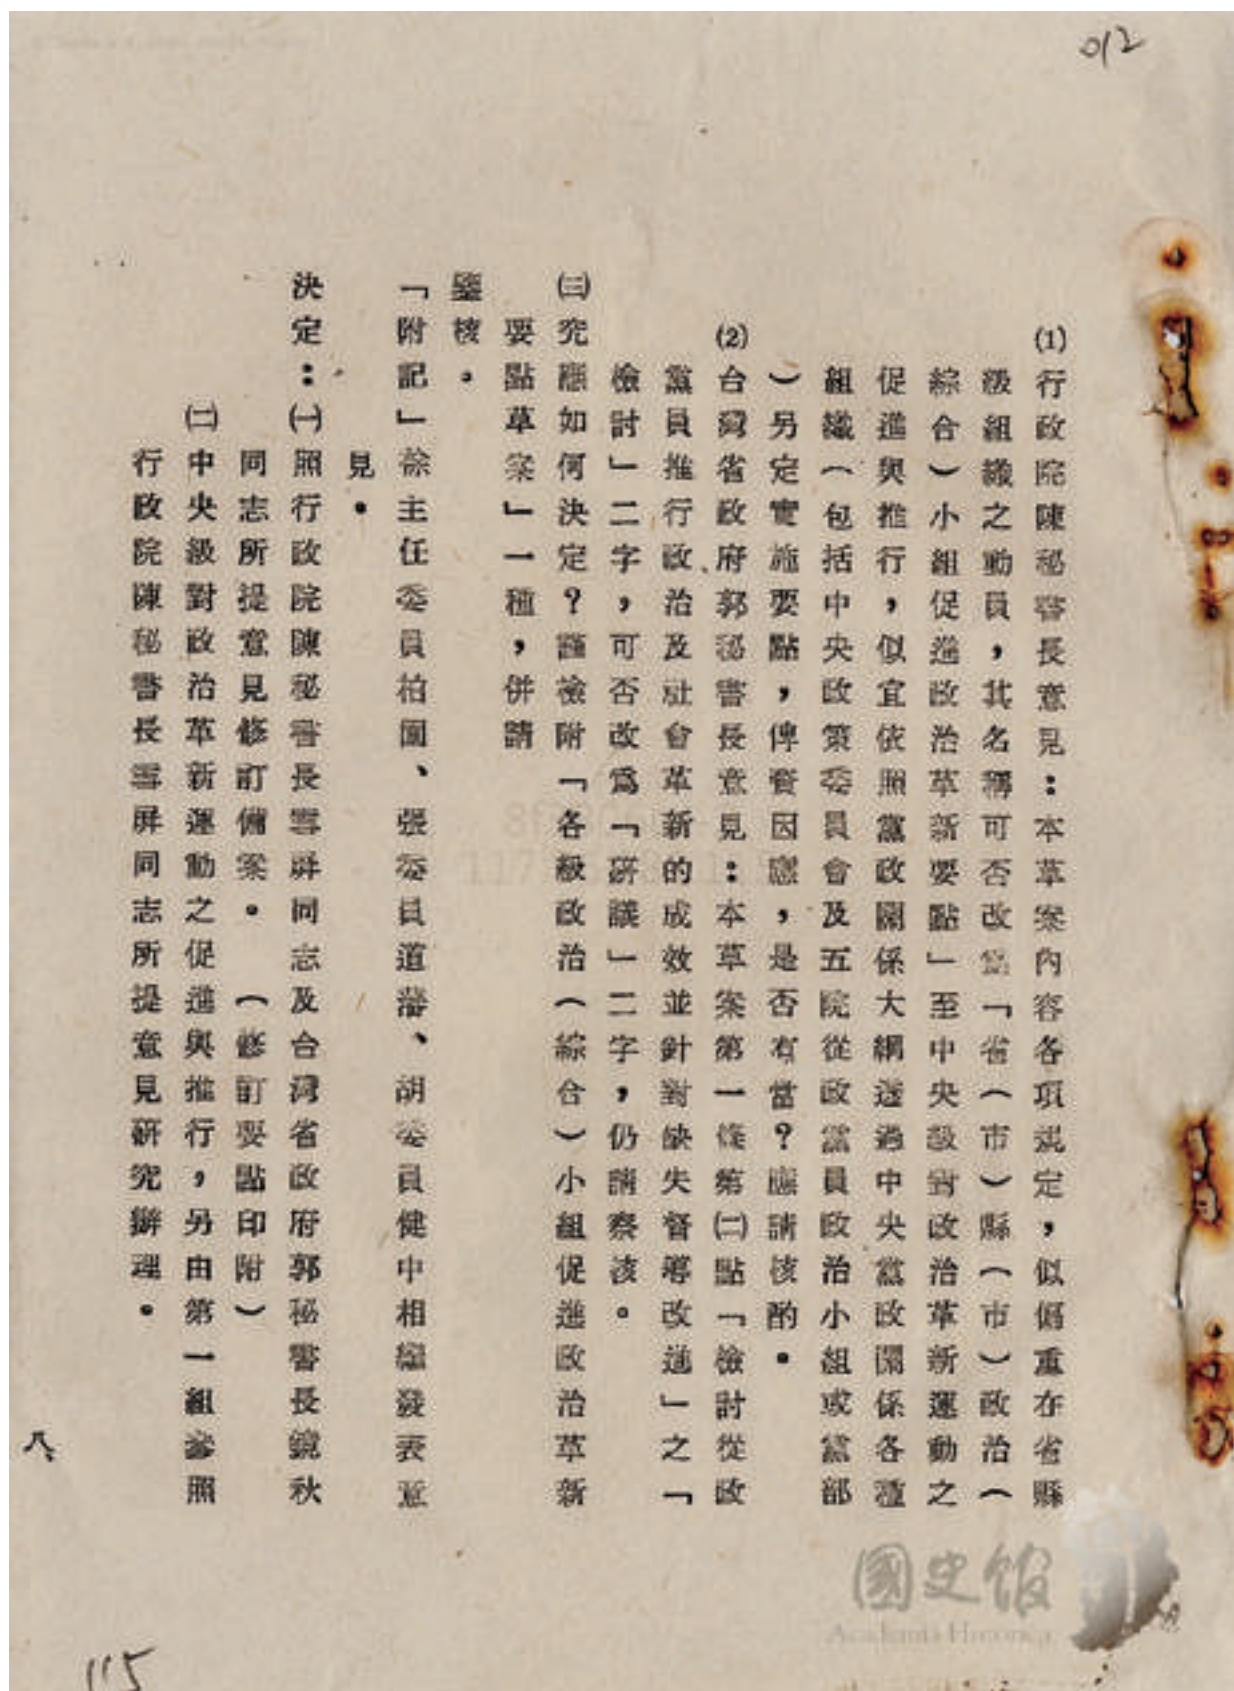 012
⑴行政院陳秘書長意見：本草案內容各項規定，似偏重在省縣
級組織之動員，其名稱可否改為「省（市）縣（市）政治（
綜合）小組促進政治革新要點」至中央級對政治革新運動之
促進與推行，似宜依照黨政關係大綱透過中央黨政關係各種
組織（包括中央政策委員會及五院從政黨員政治小組或黨部
）另定實施要點，俾資因應，是否有當？應請核酌。
⑵台灣省政府郭秘書長意見：本草案第一條第㈡點「檢討從政
黨員推行政治及社會革新的成效並針對缺失督導改進」之「
檢討」二字，可否改為「研議」二字，仍請察核。
㈢究應如何決定？謹檢附「各級政治（綜合）小組促進政治革新
要點草案」一種，併請
鑒核。
「附記」徐主任委員柏園、張委員道藩、胡委員健中相繼發表意
見。
決定：㈠照行政院陳秘書長雪屏同志及台灣省政府郭秘書長鏡秋
同志所提意見修訂備案。（修訂要點印附）
㈡中央級對政治革新運動之促進與推行，另由第一組參照
行政院陳秘書長雪屏同志所提意見研究辦理。
八
115
國史館
Academia Historica